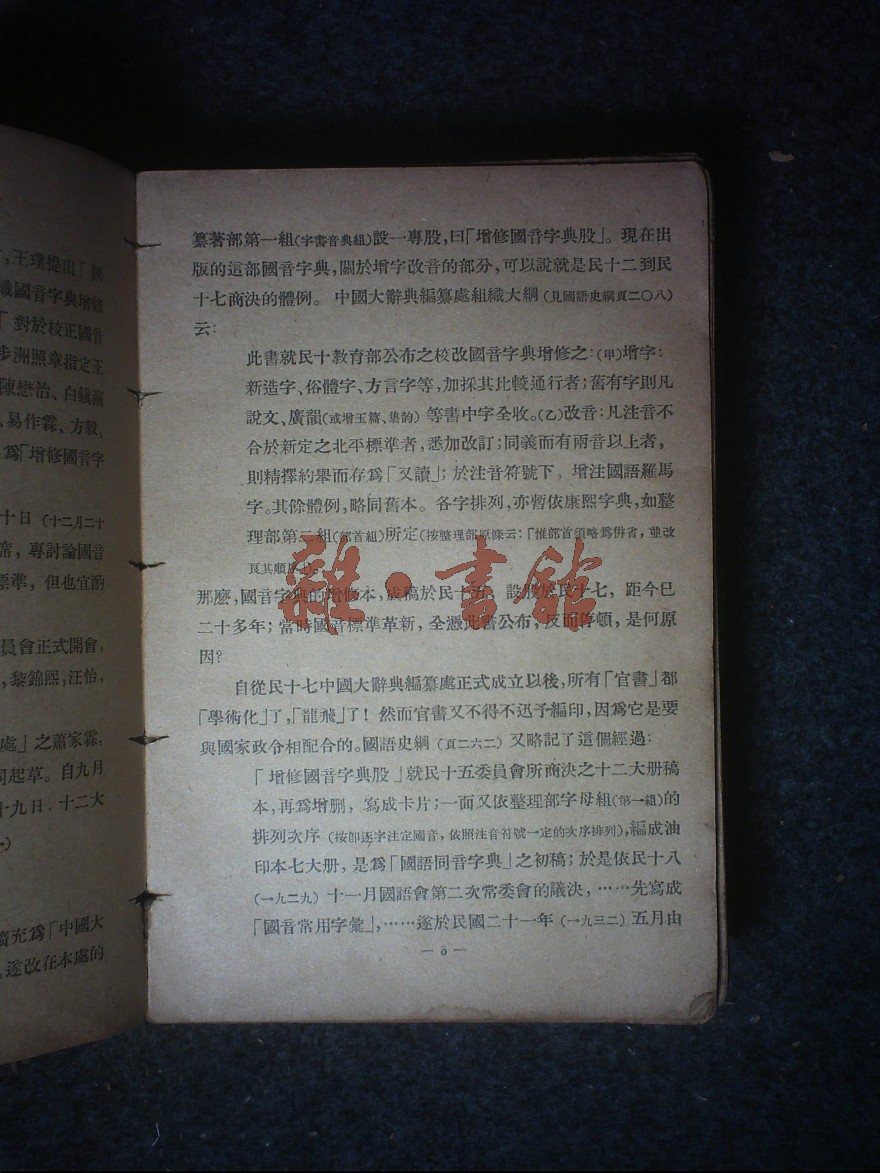 ，王璞提出「國
織國音字典增修
「對於校正國音
步洲照章指定王
陳懋治、白鎮瀛
、易作霖、方毅、
爲「增修國音字
十日（十二月二十
席，專討論國音
標準，但也宜酌
員會正式開會，
，黎錦熙，汪怡，
處」之蕭家霖，
同起草。自九月
十九日，十二大
廣充爲「中國大
，遂改在本處的
纂著部第一組(字書音典組)設一專股，曰「增修國音字典股」。現在出
版的這部國音字典，關於增字改音的部分，可以說就是民十二到民
十七商決的體例。中國大辭典編纂處組織大綱（見國語史綱頁二〇八）
云：
此書就民十教育部公布之校改國音字典增修之：(甲)增字：
新造字、俗體字、方言字等，加採其比較通行者；舊有字則凡
說文、廣韻(或增玉篇、集韵)等書中字全收。(乙)改音：凡注音不
合於新定之北平標準者，悉加改訂；同義而有兩音以上者，
則精擇約舉而存爲「又讀」；於注音符號下，增注國語羅馬
字。其餘體例，略同舊本。各字排列，亦暫依康熙字典，如整
理部第二組(部首組)所定(按整理部原條云：「惟部首須略爲併省，並改
良其順序」)。
那麽，國音字典的增修本，成稿於民十五，設股於民十七，距今已
二十多年；當時國音標準革新，全憑此書公布，反而停頓，是何原
因？
自從民十七中國大辭典編纂處正式成立以後，所有「官書」都
「學術化」了，「龍飛」了！然而官書又不得不迅予編印，因爲它是要
與國家政令相配合的。國語史綱（頁二六二）又略記了這個經過：
「增修國音字典股」就民十五委員會所商決之十二大册稿
本，再爲增删，寫成卡片；一面又依整理部字母組(第一組)的
排列次序（按卽逐字注定國音，依照注音符號一定的次序排列），編成油
印本七大册，是爲「國語同音字典」之初稿；於是依民十八
（一九二九）十一月國語會第二次常委會的議決，……先寫成
「國音常用字彙」，……遂於民國二十一年（一九三二）五月由
— 5 —
雜·書館